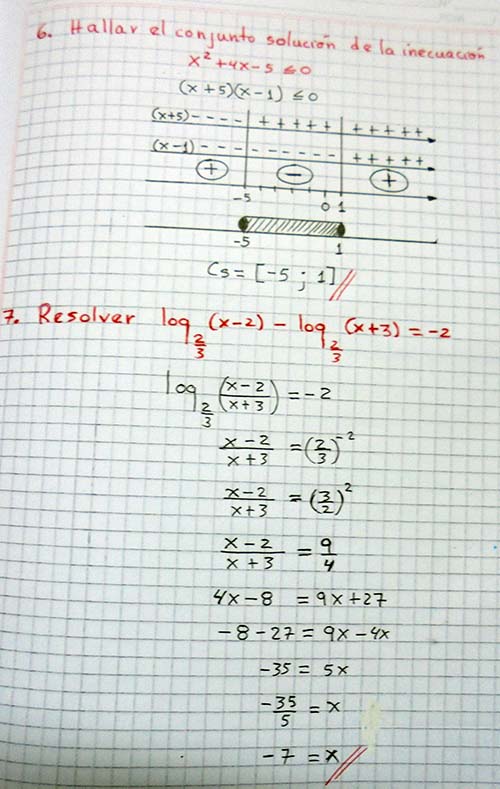 6. Hallar el conjunto solución de la inecuación
x² + 4x - 5 ≤ 0
(x + 5)(x - 1) ≤ 0
(x+5) - - - - + + + + + + + + + +
(x-1) - - - - - - - - - - + + + + +
+ - +
-5 0 1
-5 1
Cs = [-5 ; 1]
7. Resolver log_{2/3} (x-2) - log_{2/3} (x+3) = -2
log_{2/3} ((x-2)/(x+3)) = -2
(x-2)/(x+3) = (2/3)^{-2}
(x-2)/(x+3) = (3/2)²
(x-2)/(x+3) = 9/4
4x - 8 = 9x + 27
-8 - 27 = 9x - 4x
-35 = 5x
-35/5 = x
-7 = x